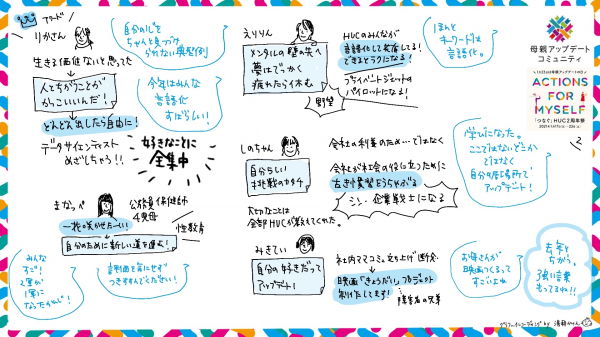 アワード
りかさん
生きる価値ないと思ってた
人とちがうことが
かっこいいんだ!
どんどん出したら自由に!
データサイエンティスト
めざしちゃう!!
自分の"心"を
ちゃんと見つづけ
られない典型例
今年はみんな
言語化
すばらしい!
好きなことに
全集中
まなっぺ
公務員 保健師
4児母
一花咲かせたーい
性教育
自分のために新しい道を進む!
みんな
すご!
評価を気にせず
つきすすんでください!
えりりん
メンタルの壁の先へ
夢はでっかく
疲れたらイオむ
野望
HUCのみんなが
言語化して発信してる!
できるようになる!
プライベートジェットの
パイロットになる!
ほんと
キーワードは
言語化。
しのちゃん
自分らしい
挑戦のカタチ
会社の利益のため…ではなく
会社が社会の役に立つために
古き慣習をうちやぶる
シン・企業戦士になる
大切なことは
全部HUCが教えてくれた。
学びになった。
ここではないどこか
ではなく
自分の居る場所で
アップデート!
みきてぃ
自分の好きだって
アップデート!
社内ママコミュ立ち上げ断念
映画「きょうだい」プロジェクト
制作してます!
障害者の兄弟
お母さんが
映画つくるって
すごいよね
去年と
ちがう。
強い言葉
もってるね!!
母親アップデート
コミュニティ
ACTIONS
FOR
MYSELF
「つなぐ」HUC2周年祭
グラフィックレコーディング by 清水かほり